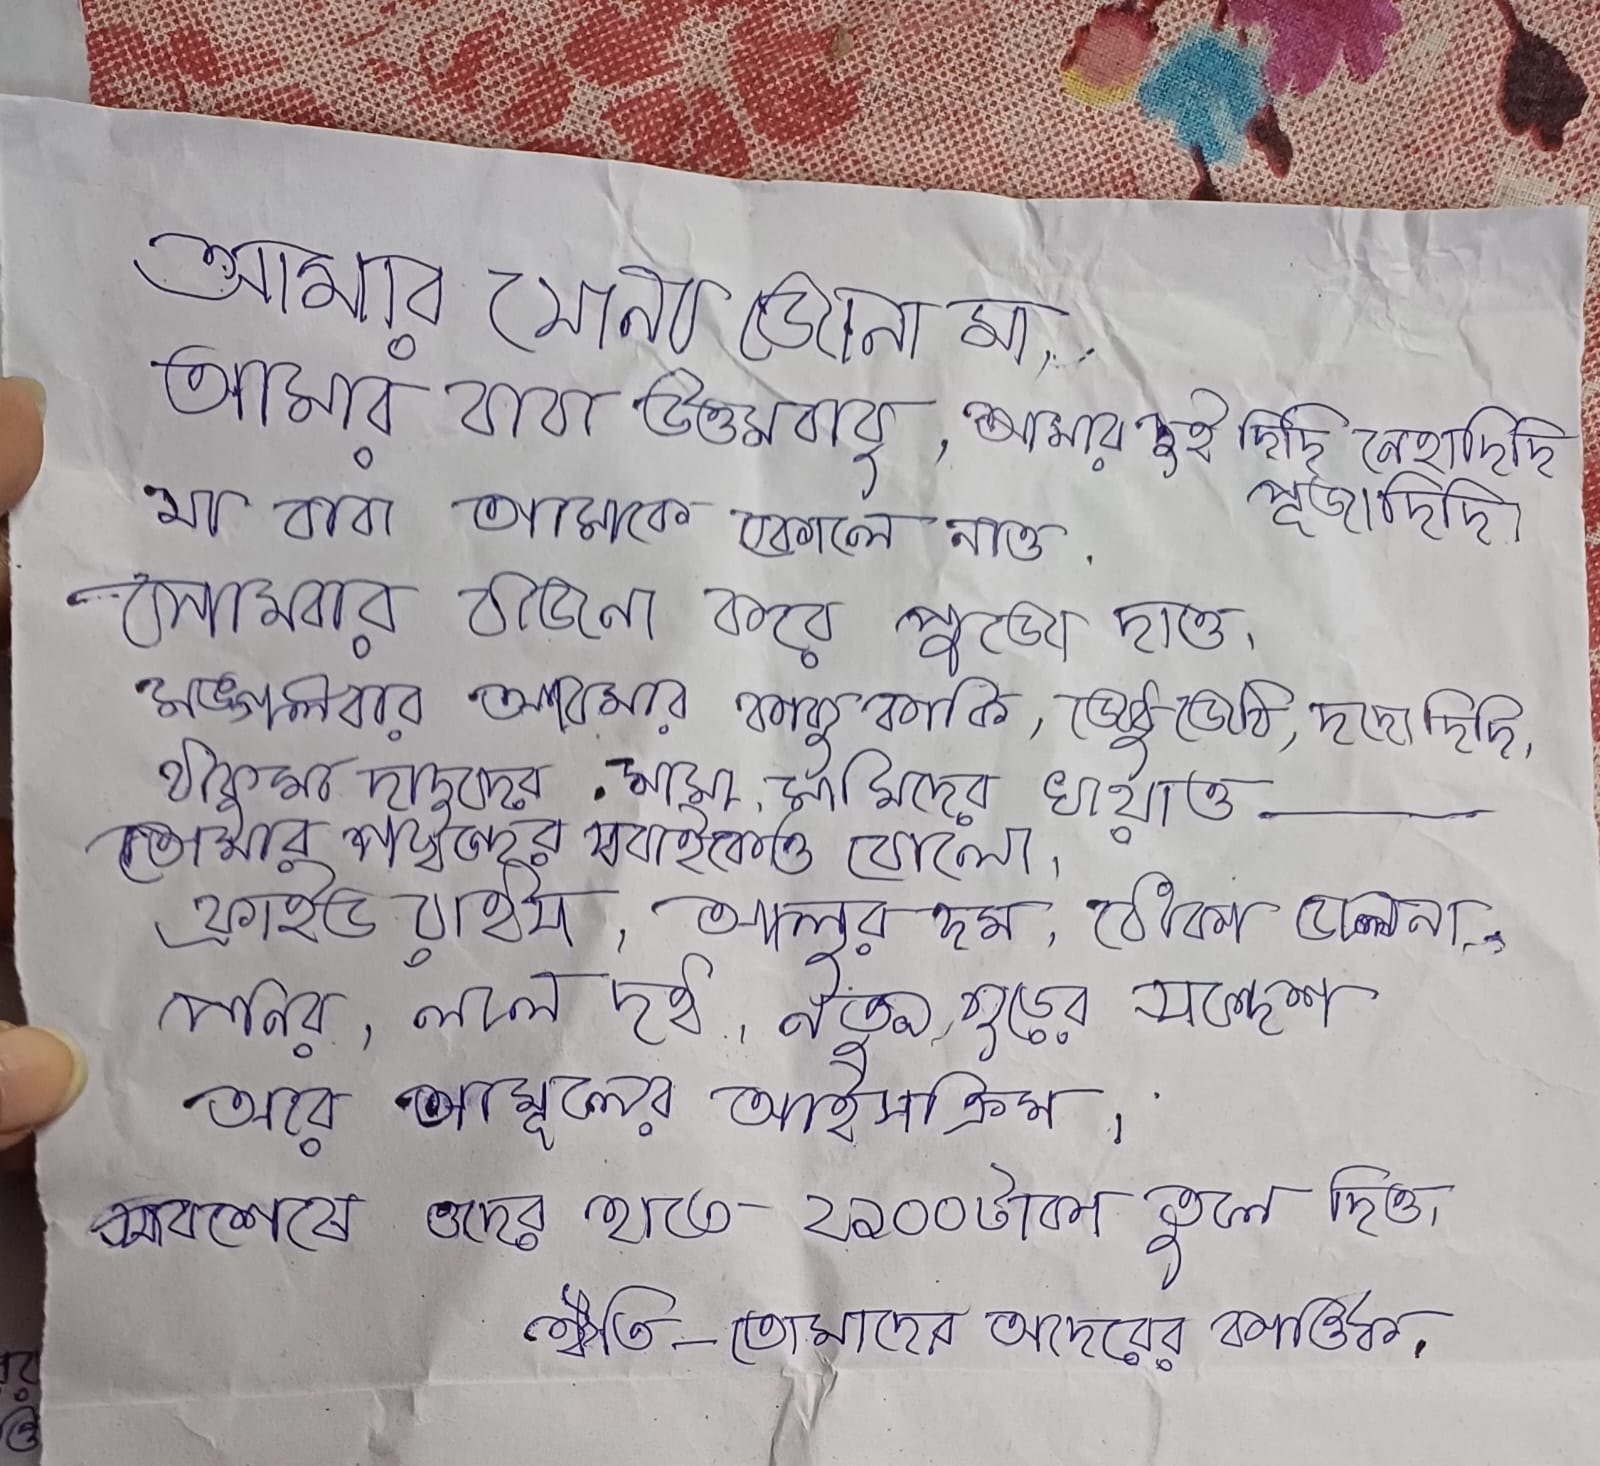 আমার সোনা জোনা মা,
আমার বাবা উত্তমবাবু, আমার দুই দিদি নেহাদিদি
পূজাদিদি।
মা বাবা আমাকে কোলে নাও.
সোমবার বাজনা করে পুজো দাও,
মঙ্গলবার আমার কাকু কাকি, জেঠু জেঠি, দাদা দিদি,
ঠাকুমা দাদুদের . মামা, মামিদের খাওয়াও
তোমার সবাইকেও বোলো,
ফ্রাইড রাইস, আলুর দম, ধোঁকা ডালনা,
পনির, লাল দই, নতুন গুড়ের সন্দেশ
আর আমূলের আইসক্রিম,
সবশেষে ওদের হাতে - ২১০০টাকা তুলে দিও,
ইতি - তোমাদের আদরের কার্ত্তিক.